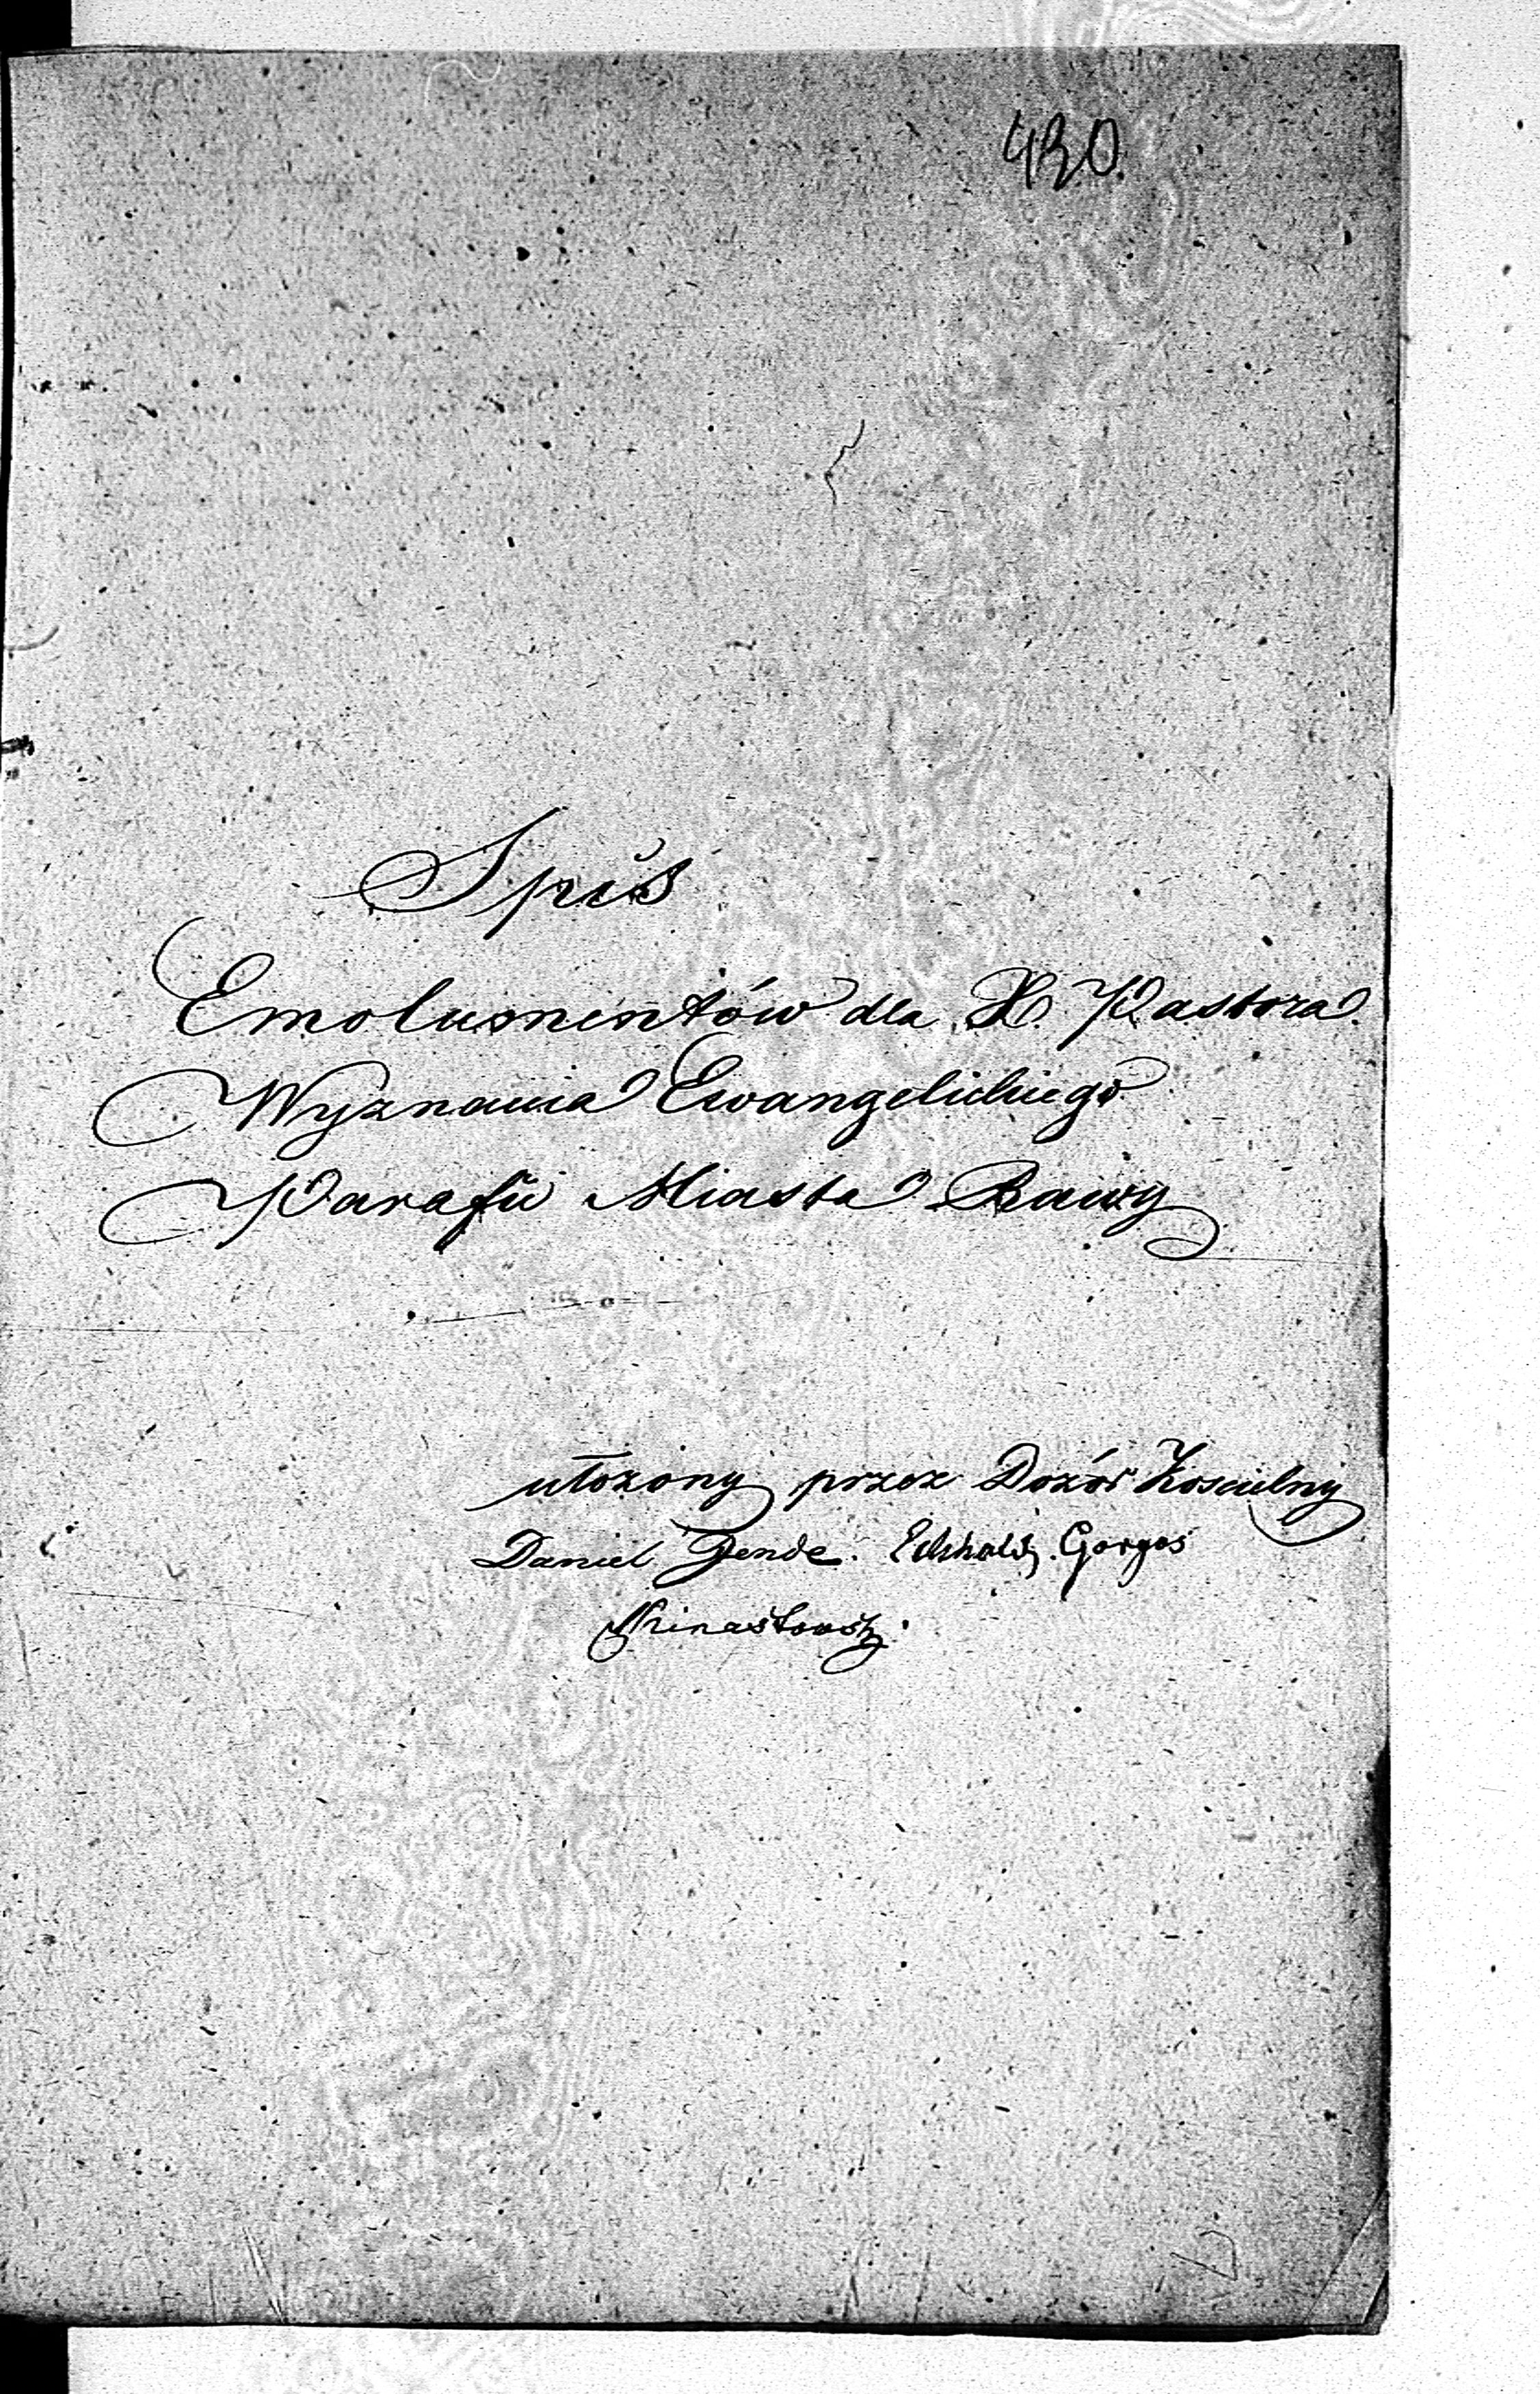 430.
Spis
Emolumentów dla X. Pastora
Wyznania Ewangelickiego
Parafii Miasta Rawy
ułożony przez Dozór Koscielny
Daniel Jende. Gorges